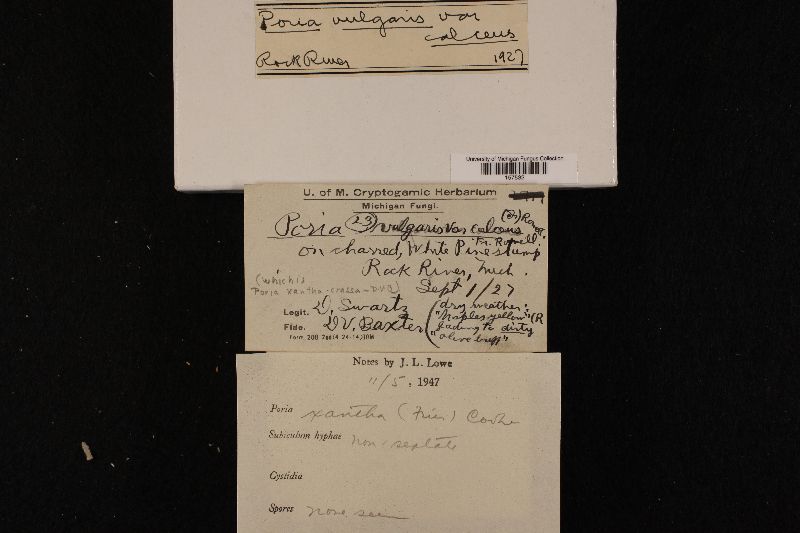 Poria vulgaris var
calceus
Rock River 1927
University of Michigan Fungus Collection
U. of M. Cryptogamic Herbarium
Michigan Fungi.
Poria (23) vulgaris var calceus
Fr. Romell.
on charred, White Pine stump
Rock River, Mich.
(which is
Poria xantha-crassa-DVB)
Sept 1/27
Legit. D. Swartz
Fide. DV. Baxter
(dry weather;
"Maples yellow" (R
fading to dirty
"olive buff"
Notes by J. L. Lowe
11/5, 1947
Poria xantha (Fries) Cooke
Subiculum hyphae non-septate
Cystidia
Spores none seen